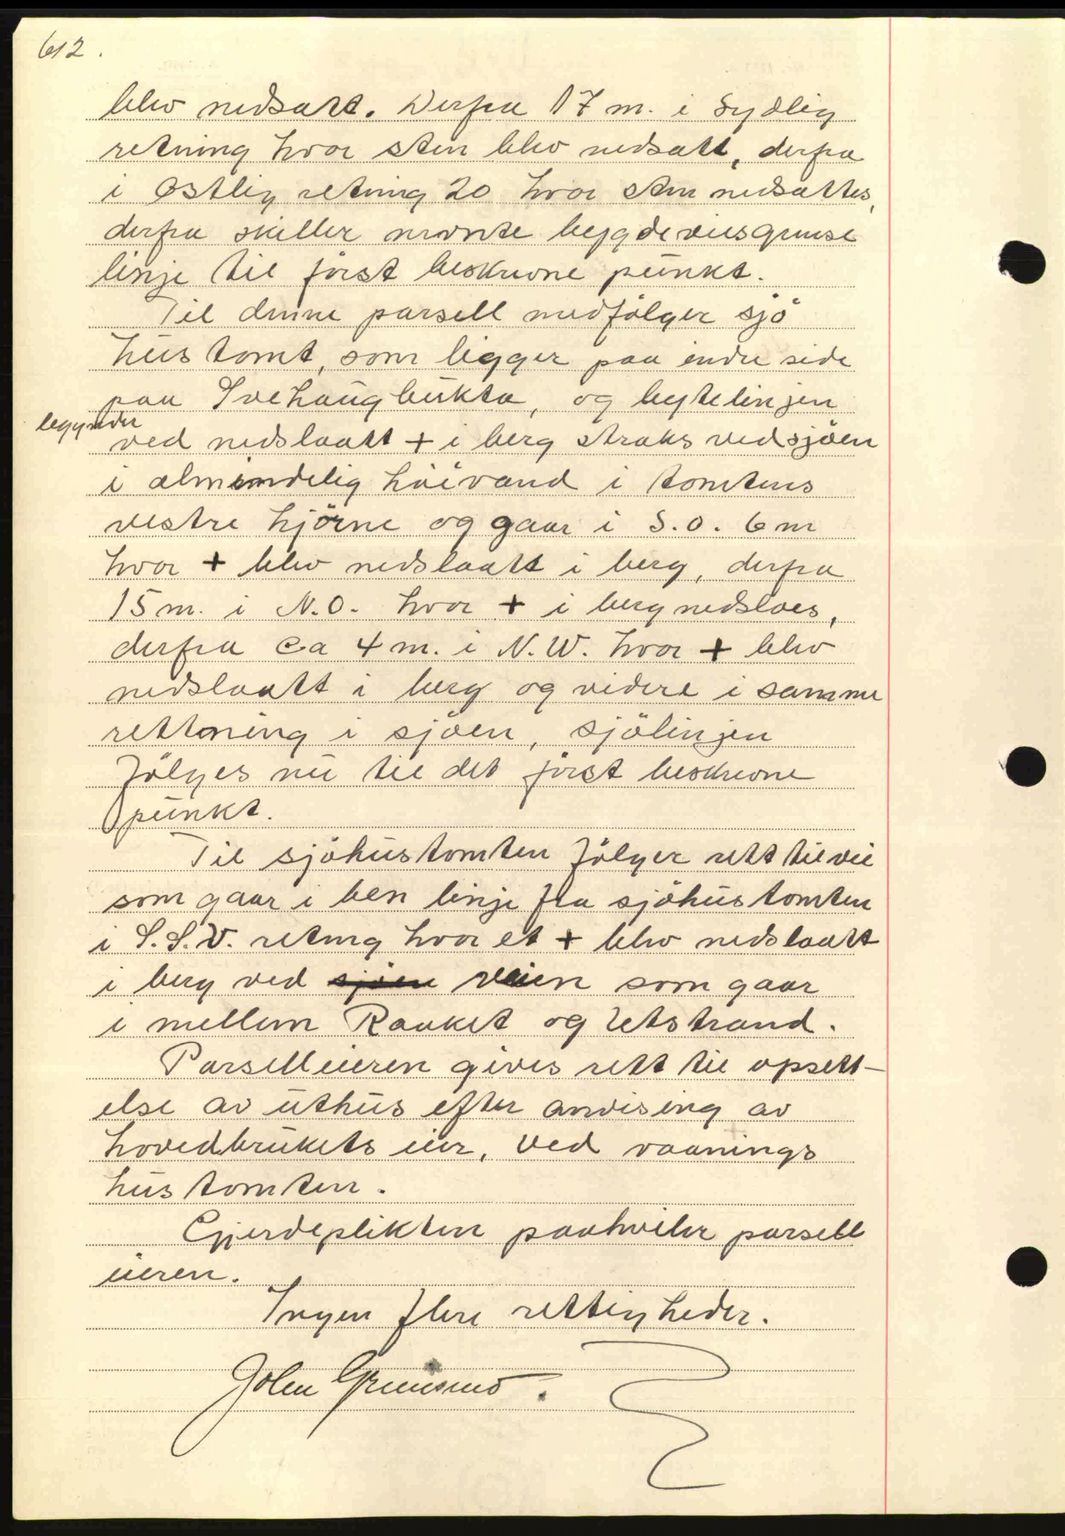 612.
blev nedsatt. Derfra 17 m. i Sydlig
retning hvor sten blev nedsatt, derfra
i Østlig retning 20 hvor sten nedsattes,
derfra skiller nevnte bygdeveisgrense
linje til först beskrevne punkt.
Til denne parsell medfölger sjö
hustomt, som ligger paa indre side
paa Svehaugbukta, og bytelinjen
begynder
ved nedslaatt + i berg straks ved sjöen
i almindelig höivand i tomtens
vestre hjörne og gaar i S.O. 6 m
hvor + blev nedslaatt i berg, derfra
15 m. i N.O. hvor + i berg nedsloes,
derfra ca 4 m. i N.W. hvor + blev
nedslaatt i berg og videre i samme
rettning i sjöen, sjölinjen
fölges nu til det först beskrevne
punkt.
Til sjöhustomten fölger rett til vei
som gaar i ben linje fra sjöhustomten
i S.S.V. retning hvor et + blev nedslaatt
i berg ved sjöen veien som gaar
i mellem Raaket og Utstrand.
Parselleieren gives rett til opsett-
else av uthus efter anvising av
hovedbrukets eier, ved vaanings
hustomten.
Gjerdeplikten paahviler parsell
eieren.
Ingen flere rettigheder.